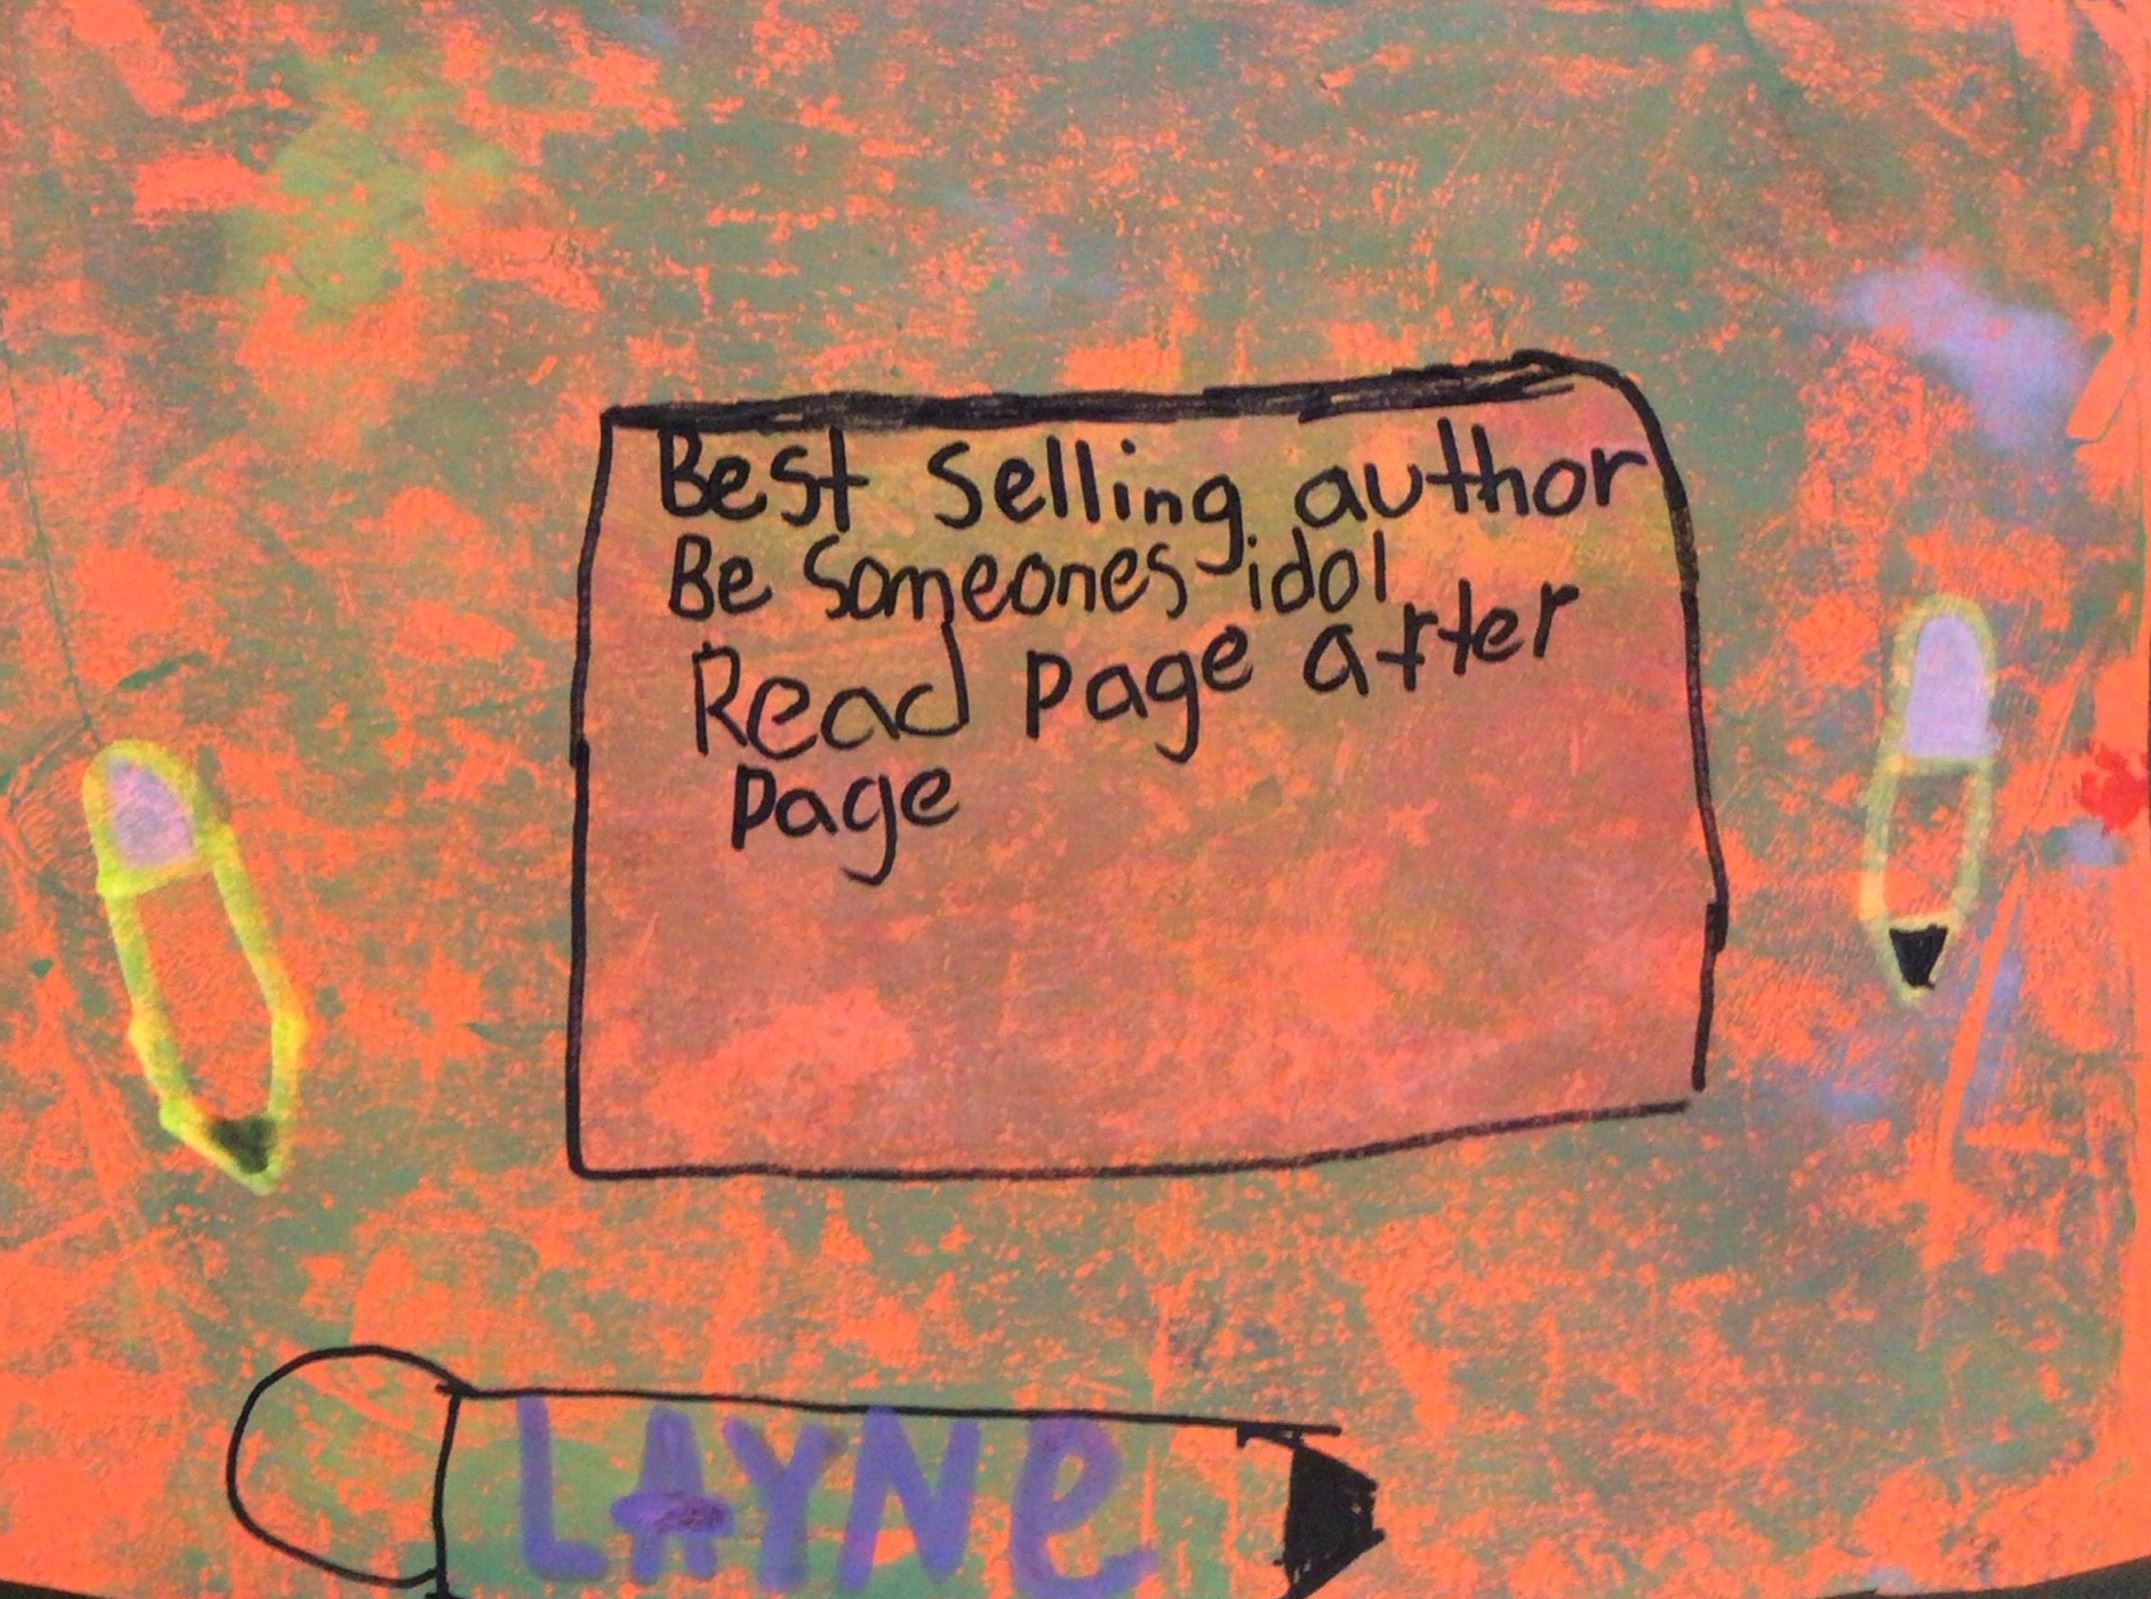 Best Selling author
Be Someones idol
Read page after
page
LAYNe